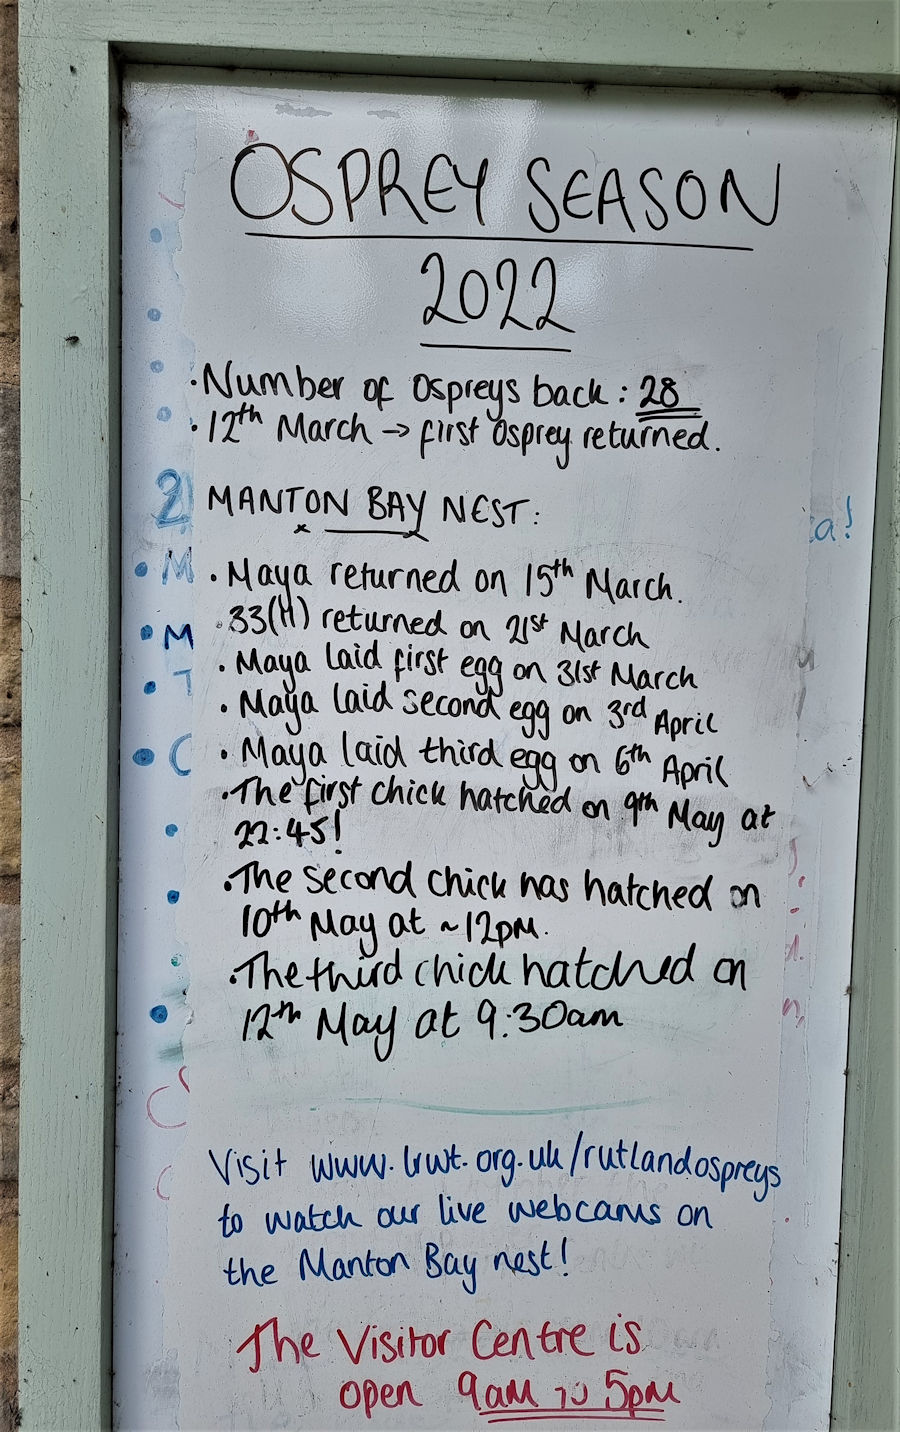 OSPREY SEASON
2022
· Number of Ospreys back : 28
· 12th March → first Osprey returned.
MANTON BAY NEST :
· Maya returned on 15th March.
· 33(H) returned on 21st March
· Maya laid first egg on 31st March
· Maya laid second egg on 3rd April
· Maya laid third egg on 6th April
· The first chick hatched on 9th May at
22:45!
· The second chick has hatched on
10th May at ~12pm.
· The third chick hatched on
12th May at 9:30am
Visit www.lrwt.org.uk/rutlandospreys
to watch our live webcams on
the Manton Bay nest!
The Visitor Centre is
open 9am to 5pm